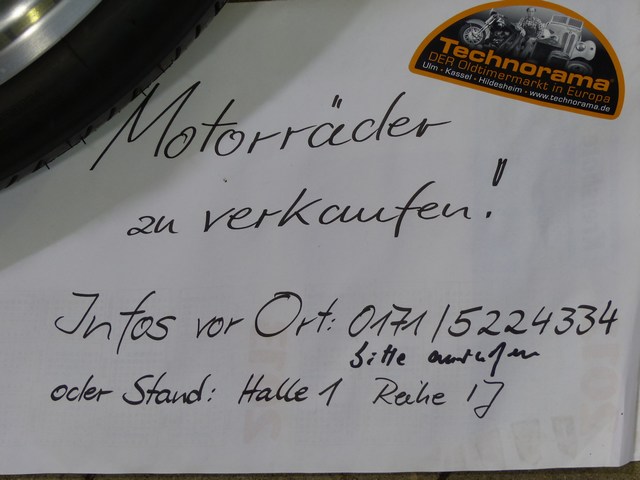 Technorama
DER Oldtimermarkt in Europa
Ulm - Kassel - Hildesheim - www.technorama.de
Motorräder
zu verkaufen!
Infos vor Ort: 0171/5224334
bitte anrufen
oder Stand: Halle 1 Reihe